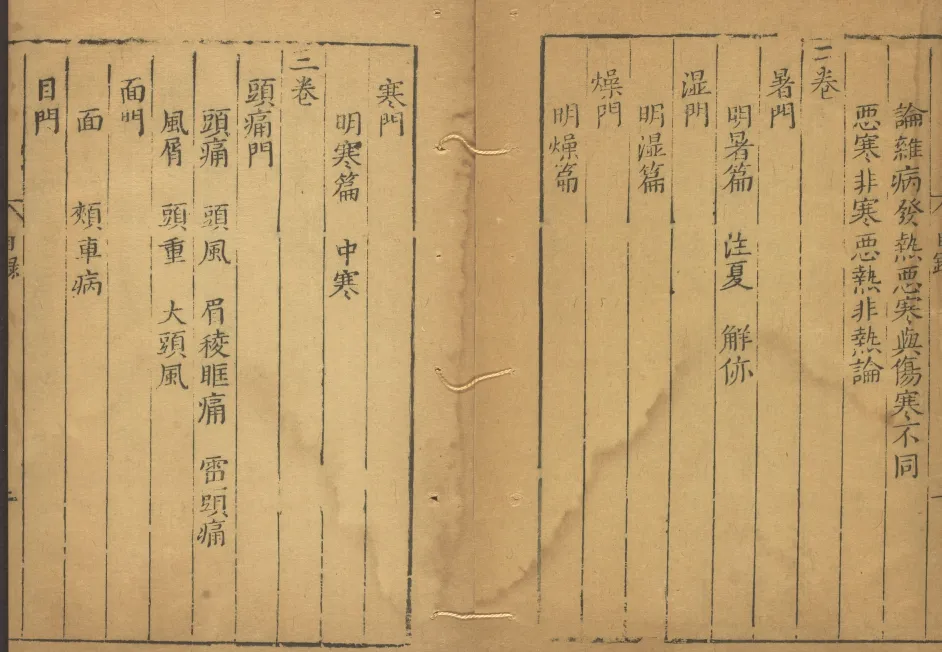 論雜病發熱惡寒與傷寒不同
惡寒非寒惡熱非熱論
二卷
暑門
明暑篇 注夏 解㑊
湿門
明湿篇
燥門
明燥篇
寒門
明寒篇 中寒
三卷
頭痛門
頭痛 頭風 眉稜眶痛 雷頭痛
風屑 頭重 大頭風
面門
面 頰車病
目門
目錄